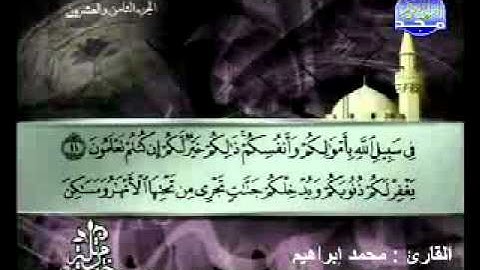 الجزء الثامن والعشرون
المجد
فِي سَبِيلِ اللَّهِ بِأَمْوَالِكُمْ وَأَنفُسِكُمْ ذَٰلِكُمْ خَيْرٌ لَّكُمْ إِن كُنتُمْ تَعْلَمُونَ ١١
يَغْفِرْ لَكُمْ ذُنُوبَكُمْ وَيُدْخِلْكُمْ جَنَّاتٍ تَجْرِي مِن تَحْتِهَا الْأَنْهَارُ وَمَسَاكِنَ
القارئ : محمد ابراهيم